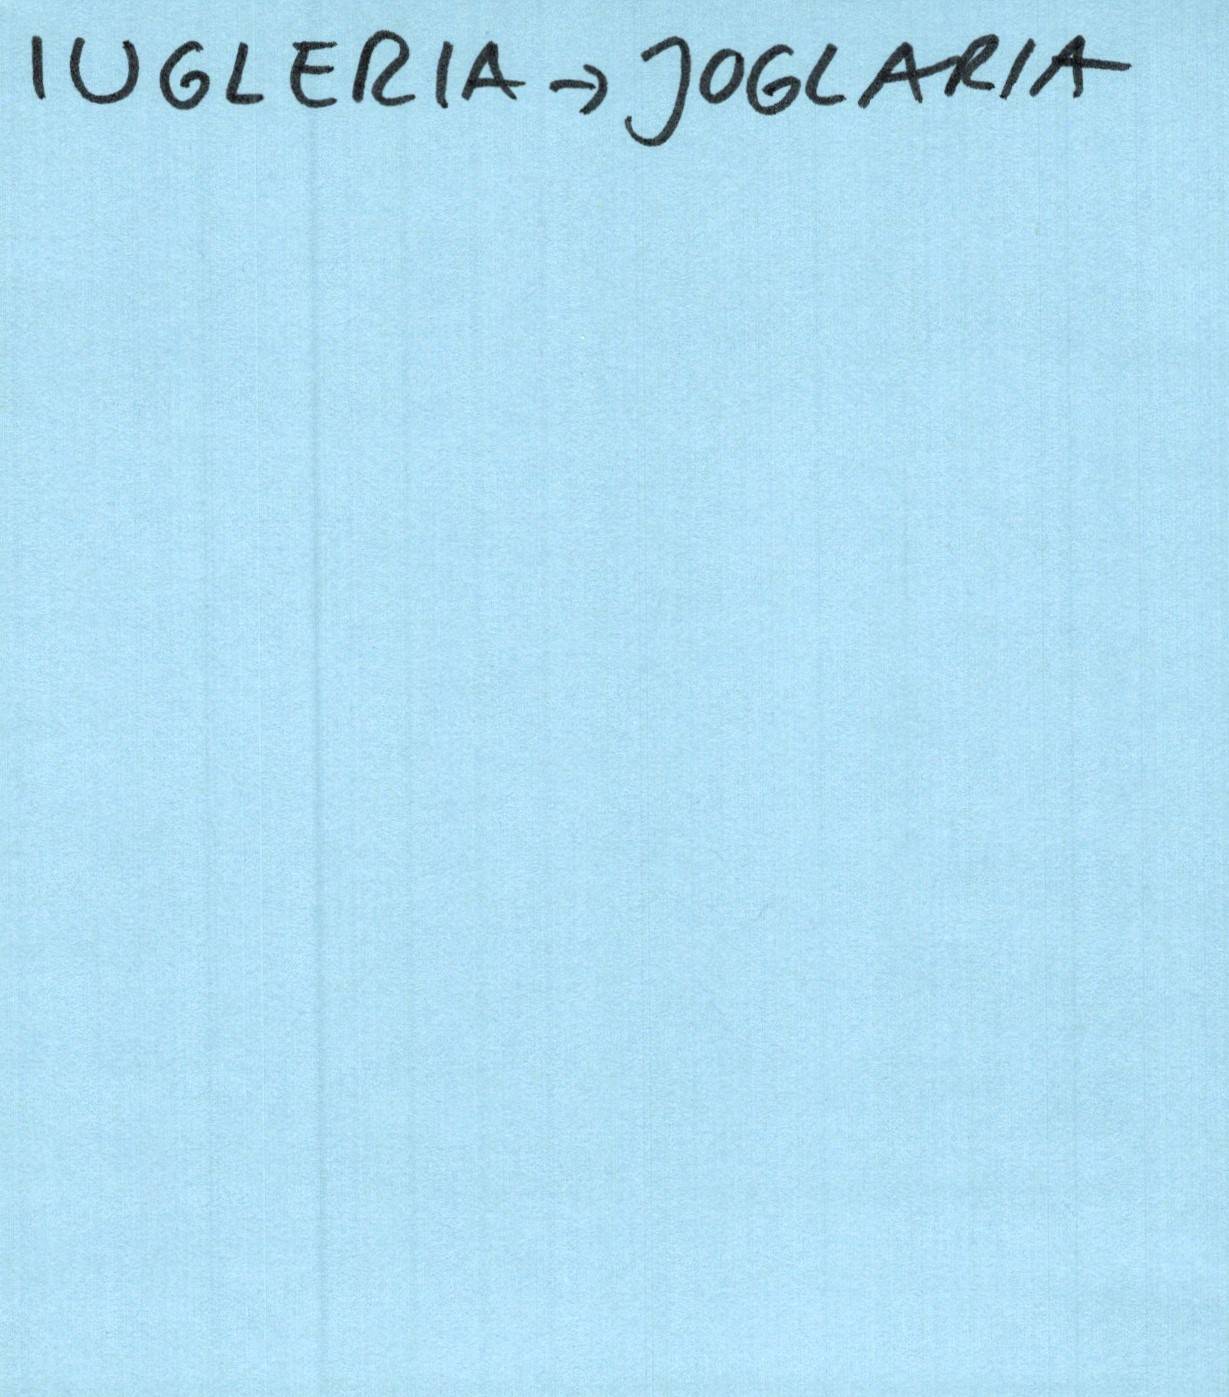 IUGLERIA → JOGLARIA